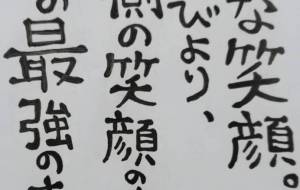 な笑顔。
びより、
側の笑顔の
の最強の